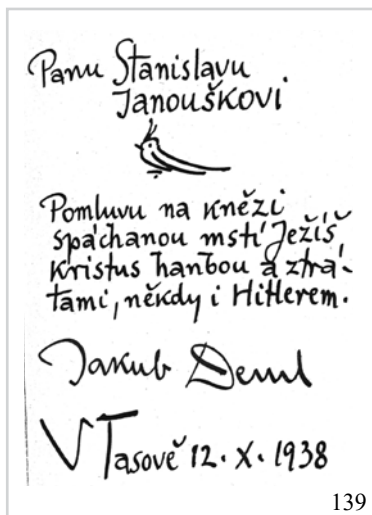 Panu Stanislavu
Janouškovi
Pomluvu na knězi
spáchanou mstí Ježíš
Kristus hanbou a ztrá-
tami, někdy i Hitlerem.
Jakub Deml
V Tasově 12. X. 1938
139